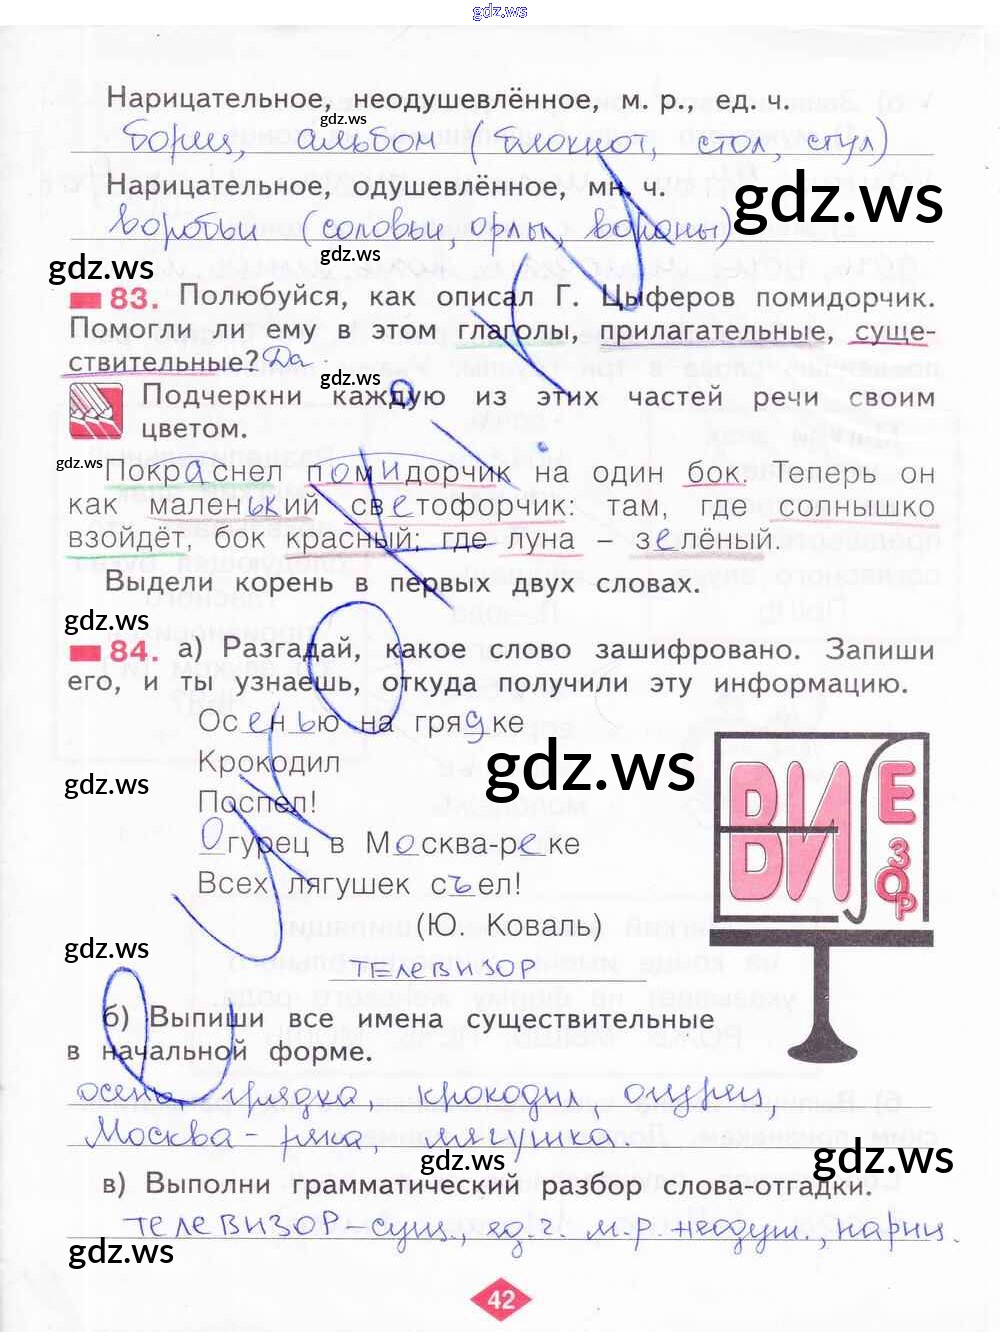 gdz.ws
Нарицательное, неодушевлённое, м. р., ед. ч.
gdz.ws
борщ, альбом (блокнот, стол, стул)
Нарицательное, одушевлённое, мн. ч.
gdz.ws
воробьи (соловьи, орлы, вороны)
gdz.ws
gdz.ws
83. Полюбуйся, как описал Г. Цыферов помидорчик.
Помогли ли ему в этом глаголы, прилагательные, суще-
ствительные? Да.
gdz.ws
Подчеркни каждую из этих частей речи своим
цветом.
gdz.ws
Покраснел помидорчик на один бок. Теперь он
как маленький светофорчик: там, где солнышко
взойдёт, бок красный; где луна – зелёный.
Выдели корень в первых двух словах.
gdz.ws
84. а) Разгадай, какое слово зашифровано. Запиши
его, и ты узнаешь, откуда получили эту информацию.
Осенью на грядке
Крокодил
gdz.ws
gdz.ws
Поспел!
Огурец в Москва-реке
Всех лягушек съел!
(Ю. Коваль)
ВИ ВИ Е ЗОР
gdz.ws
ТЕЛЕВИЗОР
б) Выпиши все имена существительные
в начальной форме.
осень, грядка, крокодил, огурец,
Москва-река, лягушка.
gdz.ws
gdz.ws
в) Выполни грамматический разбор слова-отгадки.
ТЕЛЕВИЗОР – сущ., ед. ч. м. р. неодуш., нариц.
gdz.ws
42